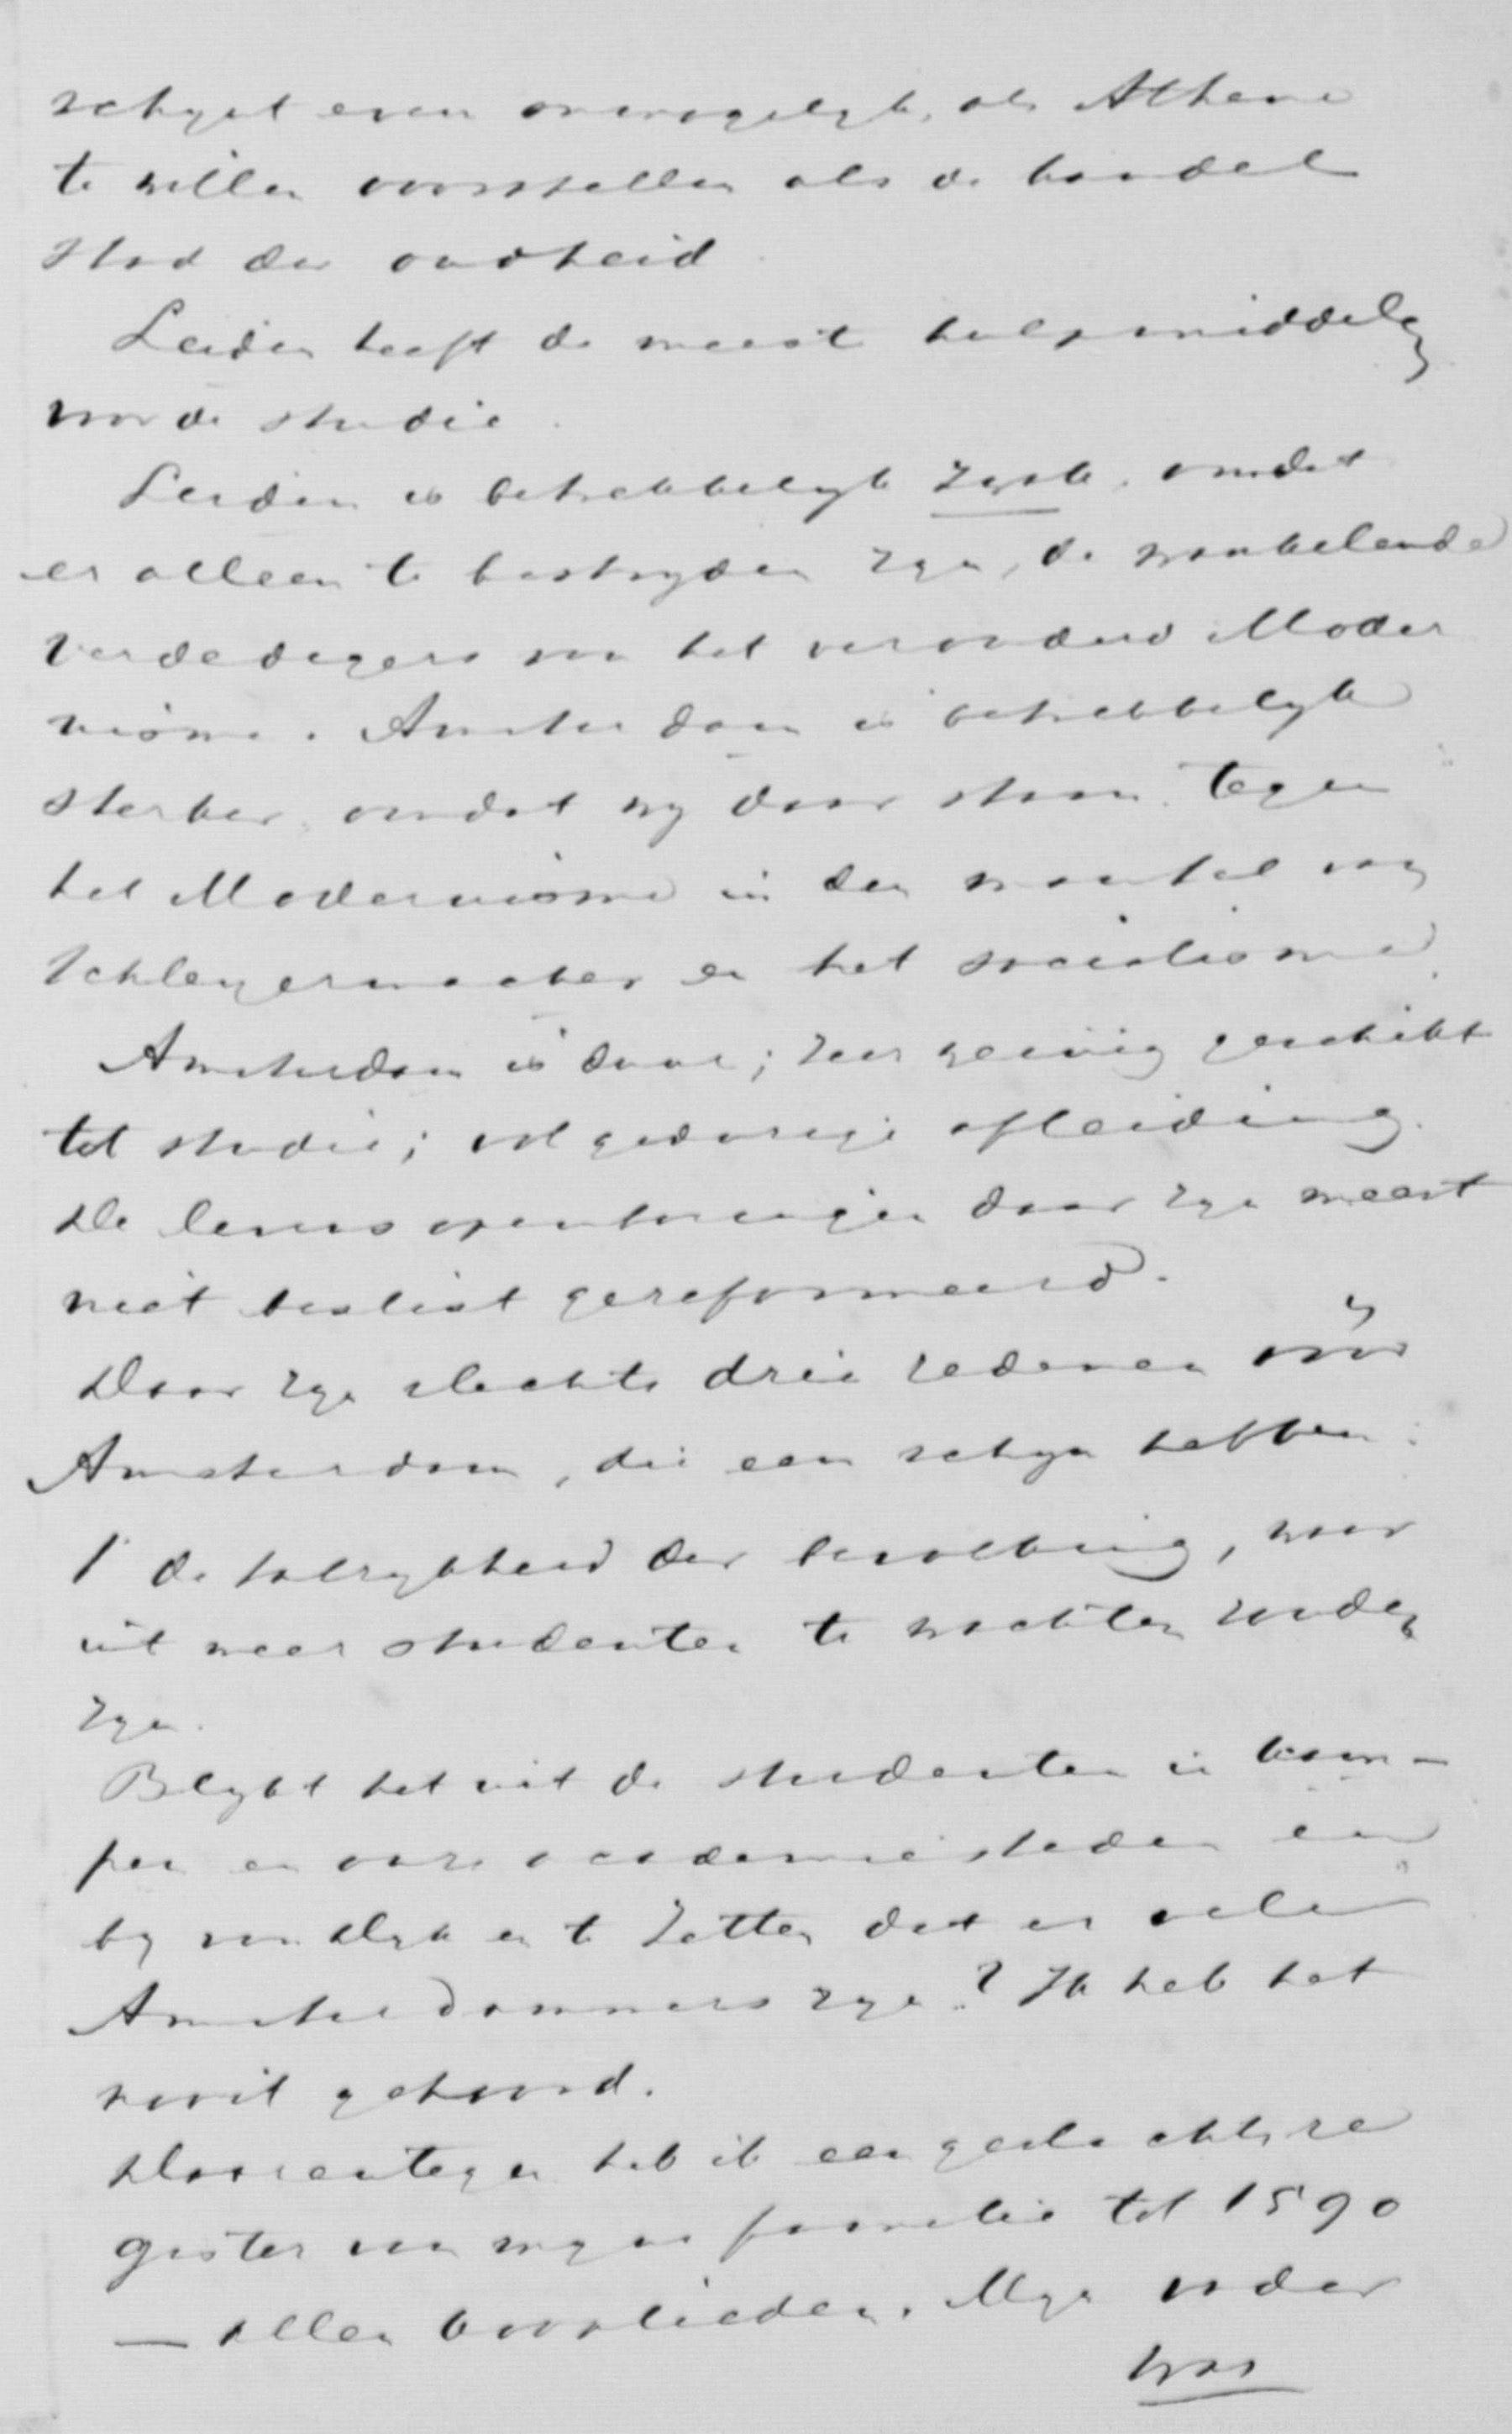 schynt even onmogelyk, als Athene
te willen voorstellen als de handel
stad der oudheid.
Leiden heeft de meest hulpmiddelen
voor de studie.
Leiden is betrekkelyk zwak, omdat
er alleen te bestryden zyn, de wankelende
verdedigers van het verouderd Moder
nisme. Amsterdam is betrekkelyk
sterker, omdat wy daar staan tegen
het Modernisme in den mantel van
Schleyermacher en het socialisme.
Amsterdam is duur; zeer weinig geschikt
tot studie; vol gedurige afleiding.
De levensopenbaringen daar zyn meest
niet beslist gereformeerd.
Daar zyn slechts drie redenen vóór
Amsterdam, die een schyn hebben:
1° de talrykheid der bevolking, waar
uit meer studenten te wachten zouden
zyn.
Blykt het uit de studenten in Kam-
pen en onze academiesteden en
by van Dyk en te Zetten dat er vele
Amsterdammers zyn? Ik heb het
nooit gehoord.
Daarentegen heb ik een geslachtsre
gister van myne familie tot 1590
— allen boerlieden. Myn vader
was